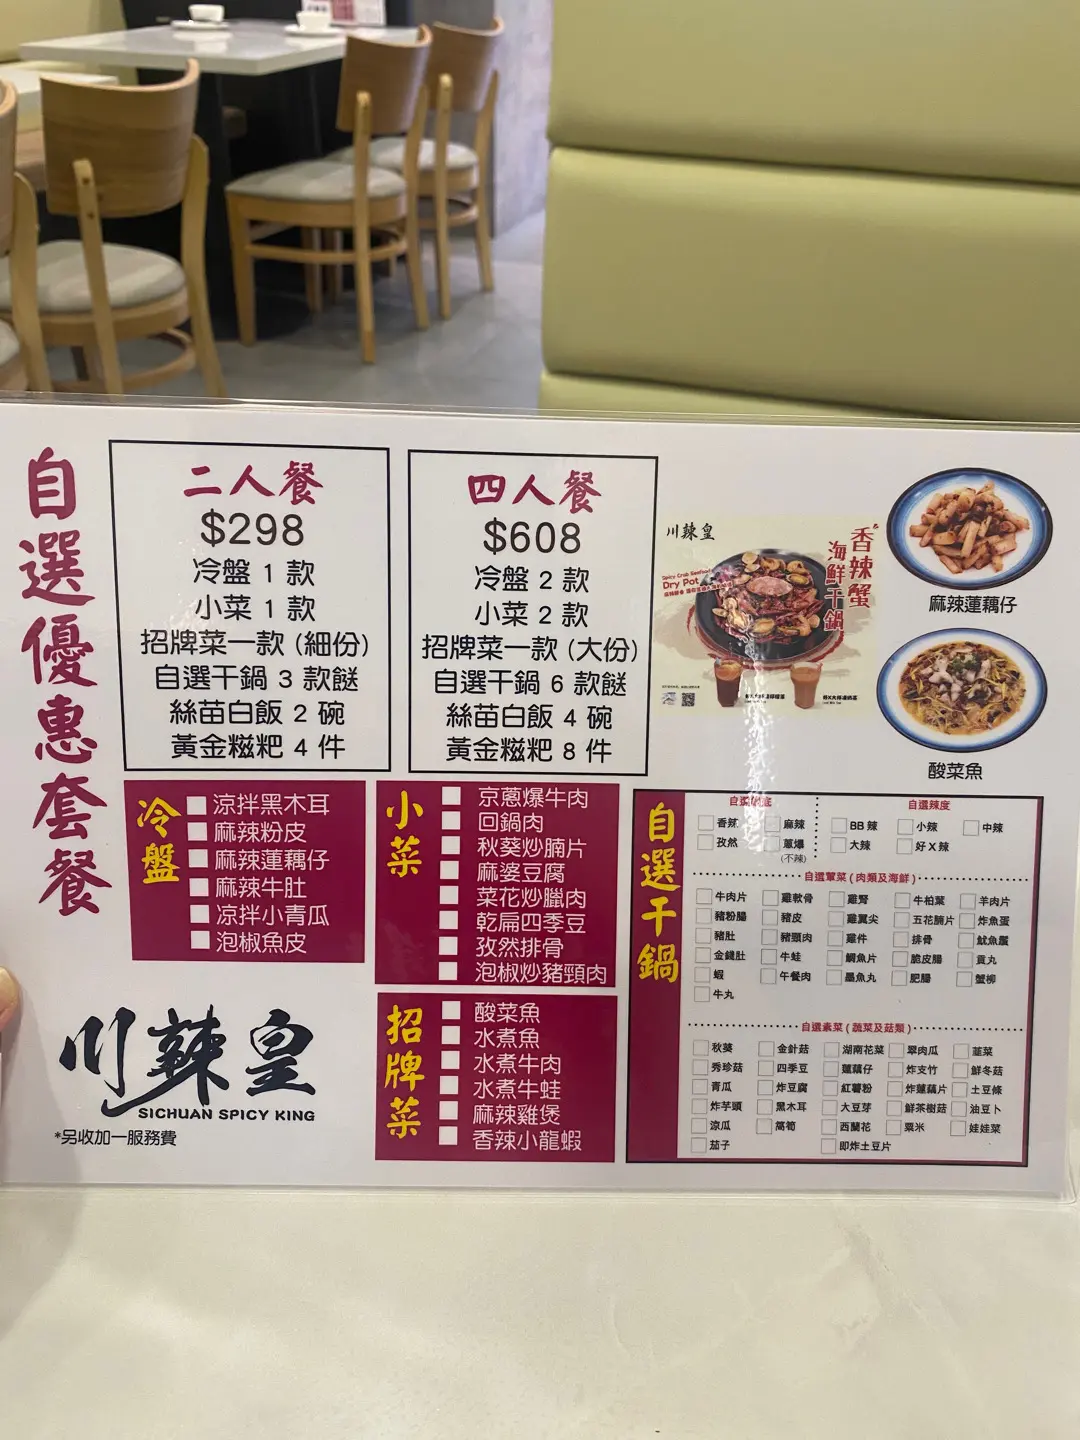 自選優惠套餐
二人餐
$298
冷盤 1 款
小菜 1 款
招牌菜一款 (細份)
自選干鍋 3 款餸
絲苗白飯 2 碗
黃金糍粑 4 件
四人餐
$608
冷盤 2 款
小菜 2 款
招牌菜一款 (大份)
自選干鍋 6 款餸
絲苗白飯 4 碗
黃金糍粑 8 件
川辣皇
香辣蟹
海鮮干鍋
Spicy Crab Seafood
Dry Pot
麻辣蓮藕仔
酸菜魚
冷盤
涼拌黑木耳
麻辣粉皮
麻辣蓮藕仔
麻辣牛肚
凉拌小青瓜
泡椒魚皮
小菜
京蔥爆牛肉
回鍋肉
秋葵炒腩片
麻婆豆腐
菜花炒臘肉
乾扁四季豆
孜然排骨
泡椒炒豬頸肉
招牌菜
酸菜魚
水煮魚
水煮牛肉
水煮牛蛙
麻辣雞煲
香辣小龍蝦
川辣皇
SICHUAN SPICY KING
*另收加一服務費
自選干鍋
自選鍋底
香辣 麻辣
孜然 蔥爆
(不辣)
自選辣度
BB 辣 小辣 中辣
大辣 好 X 辣
自選葷菜 ( 肉類及海鮮 )
牛肉片 雞軟骨 雞腎 牛柏葉 羊肉片
豬粉腸 豬皮 雞翼尖 五花腩片 炸魚蛋
豬肚 豬頸肉 雞件 排骨 魷魚鬚
金錢肚 牛蛙 鯛魚片 脆皮腸 貢丸
蝦 午餐肉 墨魚丸 肥腸 蟹柳
牛丸
自選素菜 ( 蔬菜及菇類 )
秋葵 金針菇 湖南花菜 翠肉瓜 韮菜
秀珍菇 四季豆 蓮藕仔 炸支竹 鮮冬菇
青瓜 炸豆腐 紅薯粉 炸蓮藕片 土豆條
炸芋頭 黑木耳 大豆芽 鮮茶樹菇 油豆卜
涼瓜 萵筍 西蘭花 粟米 娃娃菜
茄子 即炸土豆片